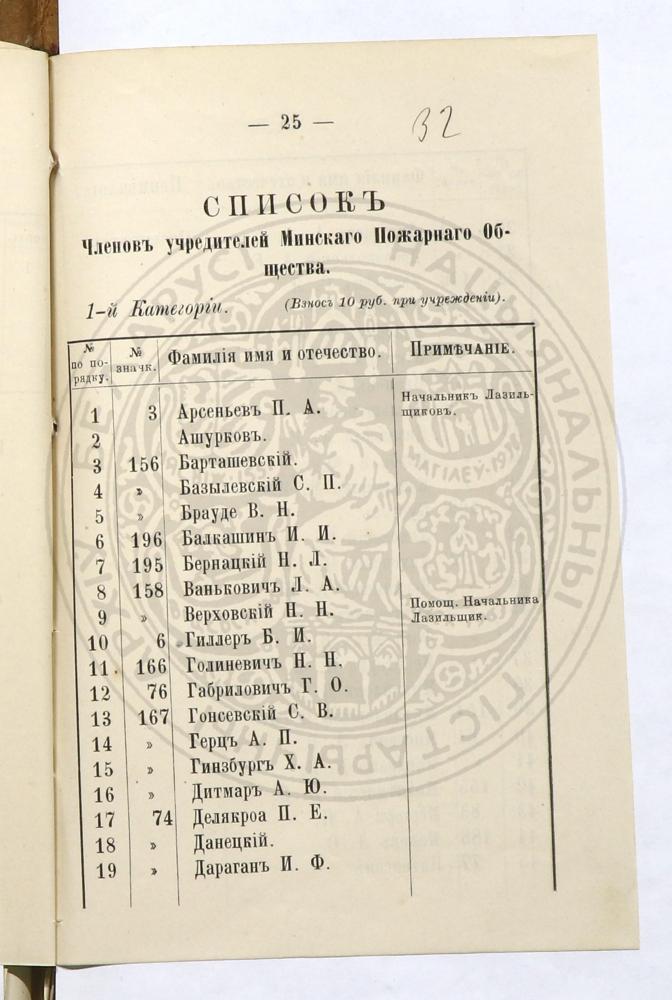 — 25 —
32
СПИСОКЪ
Членовъ учредителей Минскаго Пожарнаго Об-
щества.
1-й Категоріи. (Взносъ 10 руб. при учрежденіи).
№ по по-рядку. № значк. Фамилія имя и отечество. Примѣчаніе.
1 3 Арсеньевъ П. А. Начальникъ Лазиль-щиковъ.
2 Ашурковъ.
3 156 Барташевскій.
4 » Базылевскій С. П.
5 » Брауде В. Н.
6 196 Балкашинъ И. И.
7 195 Бернацкій Н. Л.
8 158 Ваньковичъ Л. А.
9 » Верховскій Н. Н. Помощ. Начальника Лазильщик.
10 6 Гиллеръ Б. И.
11 166 Голиневичъ Н. Н.
12 76 Габриловичъ Г. О.
13 167 Гонсевскій С. В.
14 » Герцъ А. П.
15 » Гинзбургъ Х. А.
16 » Дитмаръ А. Ю.
17 74 Делякроа П. Е.
18 » Данецкій.
19 » Дараганъ И. Ф.
МАГІЛЕЎ